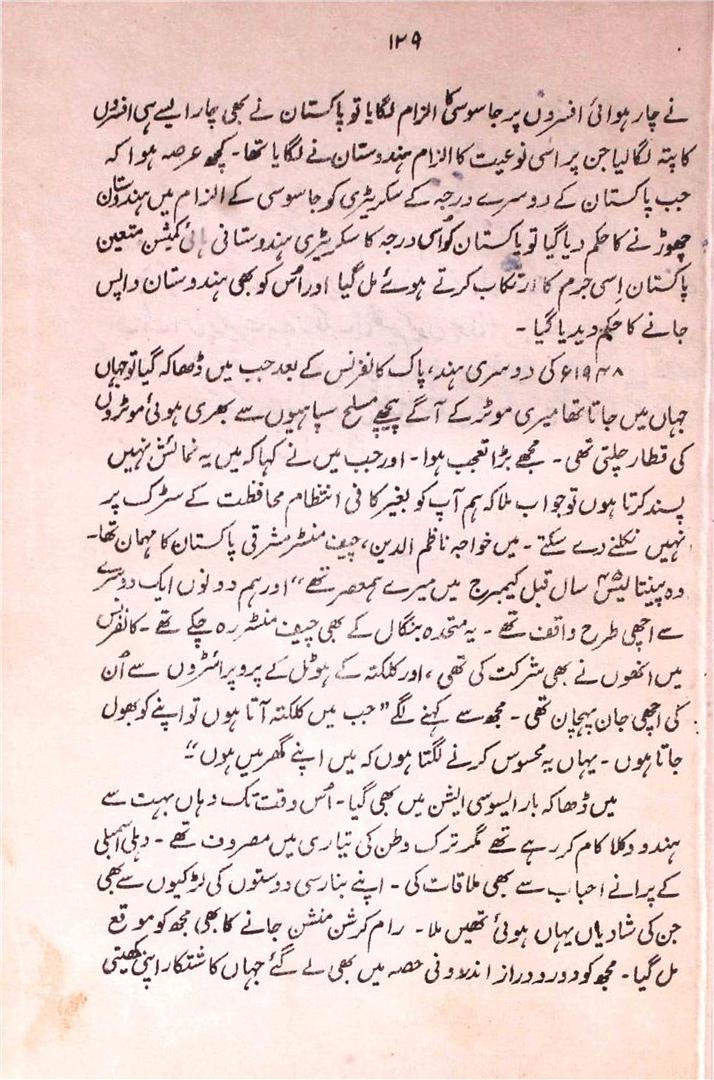 ۱۲۹
نے چار ہوائی افسروں پر جاسوسی کا الزام لگایا تو پاکستان نے بھی چار ایسے ہی افسروں
کا پتہ لگا لیا جن پر اسی نوعیت کا الزام ہندوستان نے لگایا تھا۔ کچھ عرصہ ہوا کہ
جب پاکستان کے دوسرے درجہ کے سکریٹری کو جاسوسی کے الزام میں ہندوستان
چھوڑنے کا حکم دیا گیا تو پاکستان کو اُسی درجہ کا سکریٹری ہندوستانی ہائی کمیشن متعین
پاکستان اِسی جرم کا ارتکاب کرتے ہوئے مل گیا اور اُس کو بھی ہندوستان واپس
جانے کا حکم دیدیا گیا۔
۱۹۴۸ء کی دوسری ہند، پاک کانفرنس کے بعد جب میں ڈھاکہ گیا تو جہاں
جہاں میں جاتا تھا میری موٹر کے آگے پیچھے مسلح سپاہیوں سے بھری ہوئی موٹروں
کی قطار چلتی تھی۔ مجھے بڑا تعجب ہوا۔ اور جب میں نے کہا کہ میں یہ نمائش نہیں
پسند کرتا ہوں تو جواب ملا کہ ہم آپ کو بغیر کافی انتظام محافظت کے سڑک پر
نہیں نکلنے دے سکتے۔ میں خواجہ ناظم الدین، چیف منسٹر مشرقی پاکستان کا مہمان تھا۔
وہ پینتالیس سال قبل کیمبرج میں میرے ہمعصر تھے" اور ہم دونوں ایک دوسرے
سے اچھی طرح واقف تھے۔ یہ متحدہ بنگال کے بھی چیف منسٹر رہ چکے تھے۔ کانفرنس
میں انھوں نے بھی شرکت کی تھی، اور کلکتہ کے ہوٹل کے پروپرائٹروں سے اُن
کی اچھی جان پہچان تھی۔ مجھ سے کہنے لگے "جب میں کلکتہ آتا ہوں تو اپنے کو بھول
جاتا ہوں۔ یہاں یہ محسوس کرنے لگتا ہوں کہ میں اپنے گھر میں ہوں"۔
میں ڈھاکہ بار ایسوسی ایشن میں بھی گیا۔ اُس وقت تک وہاں بہت سے
ہندو وکلا کام کر رہے تھے مگر ترک وطن کی تیاری میں مصروف تھے۔ دہلی اسمبلی
کے پرانے احباب سے بھی ملاقات کی۔ اپنے بنارسی دوستوں کی لڑکیوں سے بھی
جن کی شادیاں یہاں ہوئی تھیں ملا۔ رام کرشن منشن جانے کا بھی مجھ کو موقع
مل گیا۔ مجھ کو دور و دراز اندرونی حصہ میں بھی لے گئے جہاں کاشتکار اپنی کھیتی